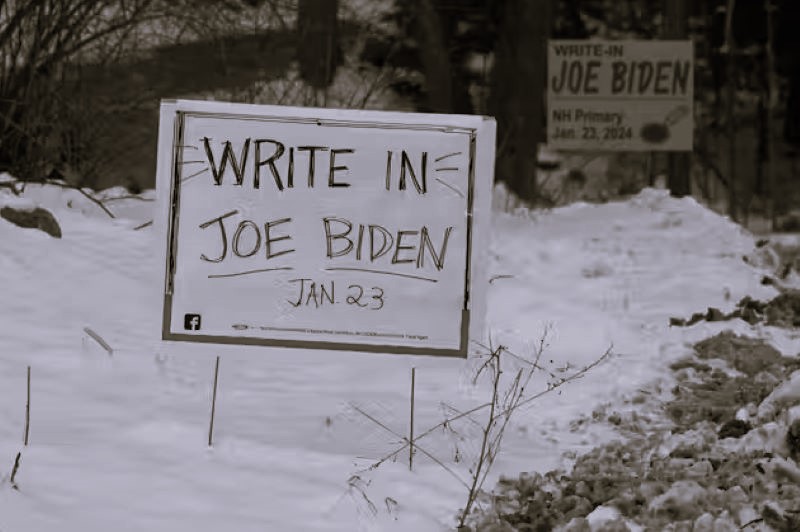 WRITE IN
JOE BIDEN
JAN. 23
f
WRITE-IN
JOE BIDEN
NH Primary
Jan. 23, 2024